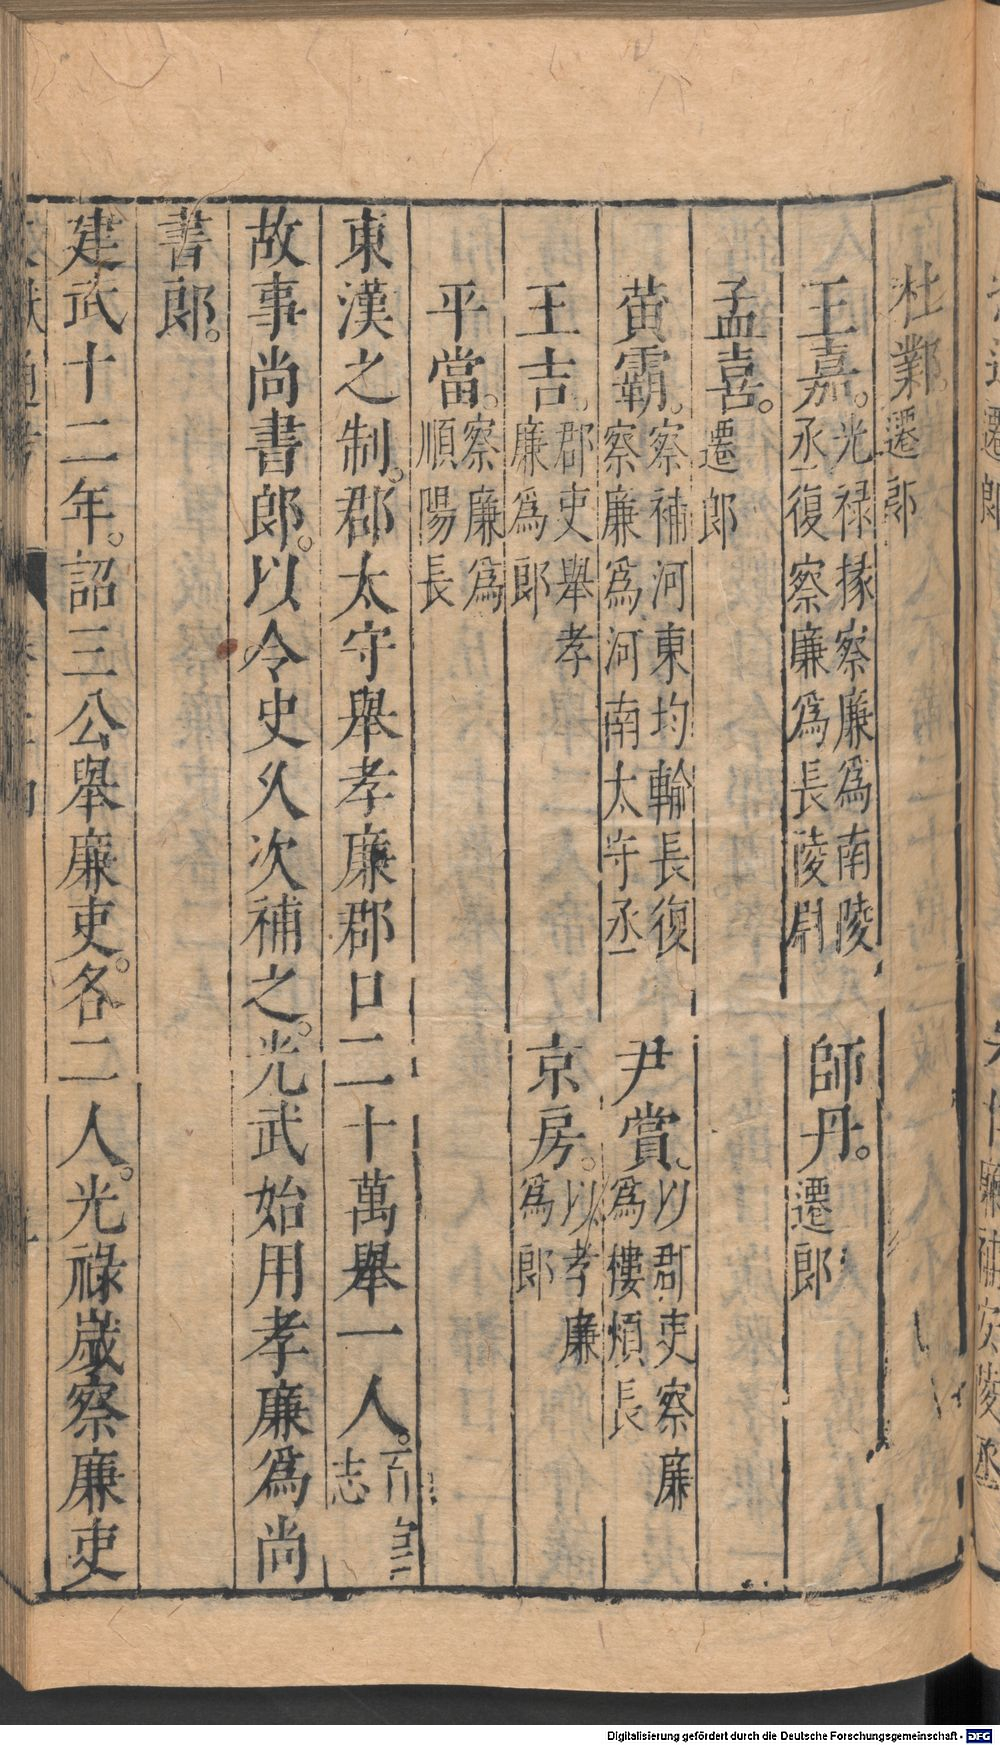 杜鄴。遷郎
王嘉。光禄掾察廉爲南陵丞復察廉爲長陵尉　師丹。遷郎
孟喜。遷郎
黄霸。察補河東均輸長復察廉爲河南太守丞　尹賞。以郡吏察廉爲樓煩長
王吉。郡吏舉孝廉爲郎　京房。以孝廉爲郎
平當。察廉爲順陽長
東漢之制。郡太守舉孝廉郡口二十萬舉一人。百官志
故事尚書郎。以令史久次補之。光武始用孝廉爲尚
書郎。
建武十二年。詔三公舉廉吏。各二人。光祿歲察廉吏
Digitalisierung gefördert durch die Deutsche Forschungsgemeinschaft - DFG